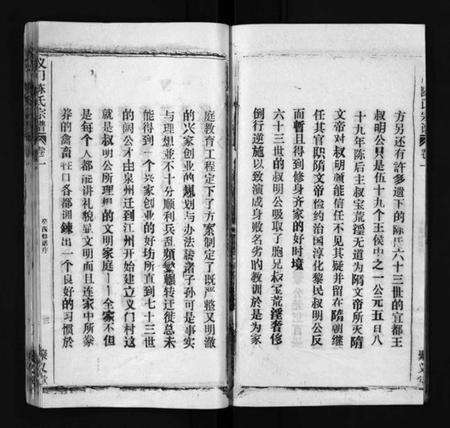 方另还有許多遺下的陈氏六十三世的宜都王
叔明公只是伍十九个王侯中之一公元五日八
十九年陈后主叔宝荒淫无道为隋文帝所灭隋
文帝对叔明頗能信任不见其疑并留在隋朝继
任其官职隋文帝恪约治国淳化黎民叔明公反
而暫且得到修身齐家的好时境
六十三世的叔明公吸取了胞兄叔宝荒淫奢侈
倒行逆施以致演成身敗名劣旳教訓於是为家
庭教育工程定下了方案制定了既严整又明澈
的兴家创业的规划与办法諸子孙可是事实
与理想並不十分顺利兵乱頻繁輾转迁徙总未
能得到一个兴家创业的好坊所直到七十三世
的闕公才由泉迁到江州开始建立义门陈这
就是叔明公所理想的文明家庭——全家不但
是每个人都能讲礼貌显文明而且连家中所豢
养的禽畜牲口各都训鍊出一个良好的习慣於
义门陈氏宗譜
卷一
聚义堂
陈氏宗譜
卷一